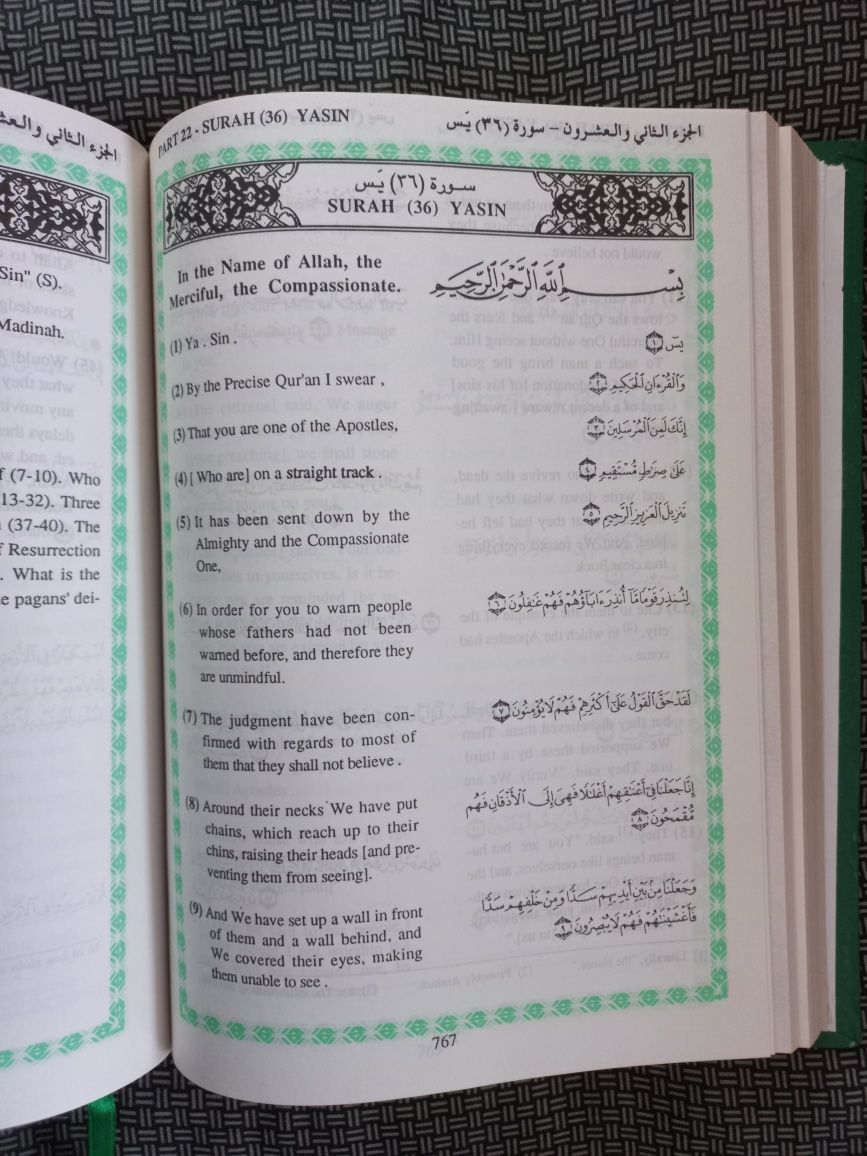 الجزء الثاني والعشر
Sin" (S).
Madinah.
f (7-10). Who
13-32). Three
(37-40). The
f Resurrection
. What is the
e pagans' dei-
PART 22 - SURAH (36) YASIN
الجزء الثاني والعشرون - سورة (٣٦) يَس
سورة (٣٦) يَس
SURAH (36) YASIN
In the Name of Allah, the
Merciful, the Compassionate.
بِسْمِ اللَّهِ الرَّحْمَٰنِ الرَّحِيمِ
(1) Ya . Sin .
يسٓ ١
(2) By the Precise Qur'an I swear ,
وَٱلْقُرْءَانِ ٱلْحَكِيمِ ٢
(3) That you are one of the Apostles,
إِنَّكَ لَمِنَ ٱلْمُرْسَلِينَ ٣
(4) [ Who are] on a straight track .
عَلَىٰ صِرَٰطٍ مُّسْتَقِيمٍ ٤
(5) It has been sent down by the
Almighty and the Compassionate
One,
تَنزِيلَ ٱلْعَزِيزِ ٱلرَّحِيمِ ٥
(6) In order for you to warn people
whose fathers had not been
warned before, and therefore they
are unmindful.
لِتُنذِرَ قَوْمًا مَّآ أُنذِرَ ءَابَآؤُهُمْ فَهُمْ غَٰفِلُونَ ٦
(7) The judgment have been con-
firmed with regards to most of
them that they shall not believe .
لَقَدْ حَقَّ ٱلْقَوْلُ عَلَىٰٓ أَكْثَرِهِمْ فَهُمْ لَا يُؤْمِنُونَ ٧
(8) Around their necks We have put
chains, which reach up to their
chins, raising their heads [and pre-
venting them from seeing].
إِنَّا جَعَلْنَا فِىٓ أَعْنَٰقِهِمْ أَغْلَٰلًا فَهِىَ إِلَى ٱلْأَذْقَانِ فَهُم
مُّقْمَحُونَ ٨
(9) And We have set up a wall in front
of them and a wall behind, and
We covered their eyes, making
them unable to see .
وَجَعَلْنَا مِنۢ بَيْنِ أَيْدِيهِمْ سَدًّا وَمِنْ خَلْفِهِمْ سَدًّا
فَأَغْشَيْنَٰهُمْ فَهُمْ لَا يُبْصِرُونَ ٩
767